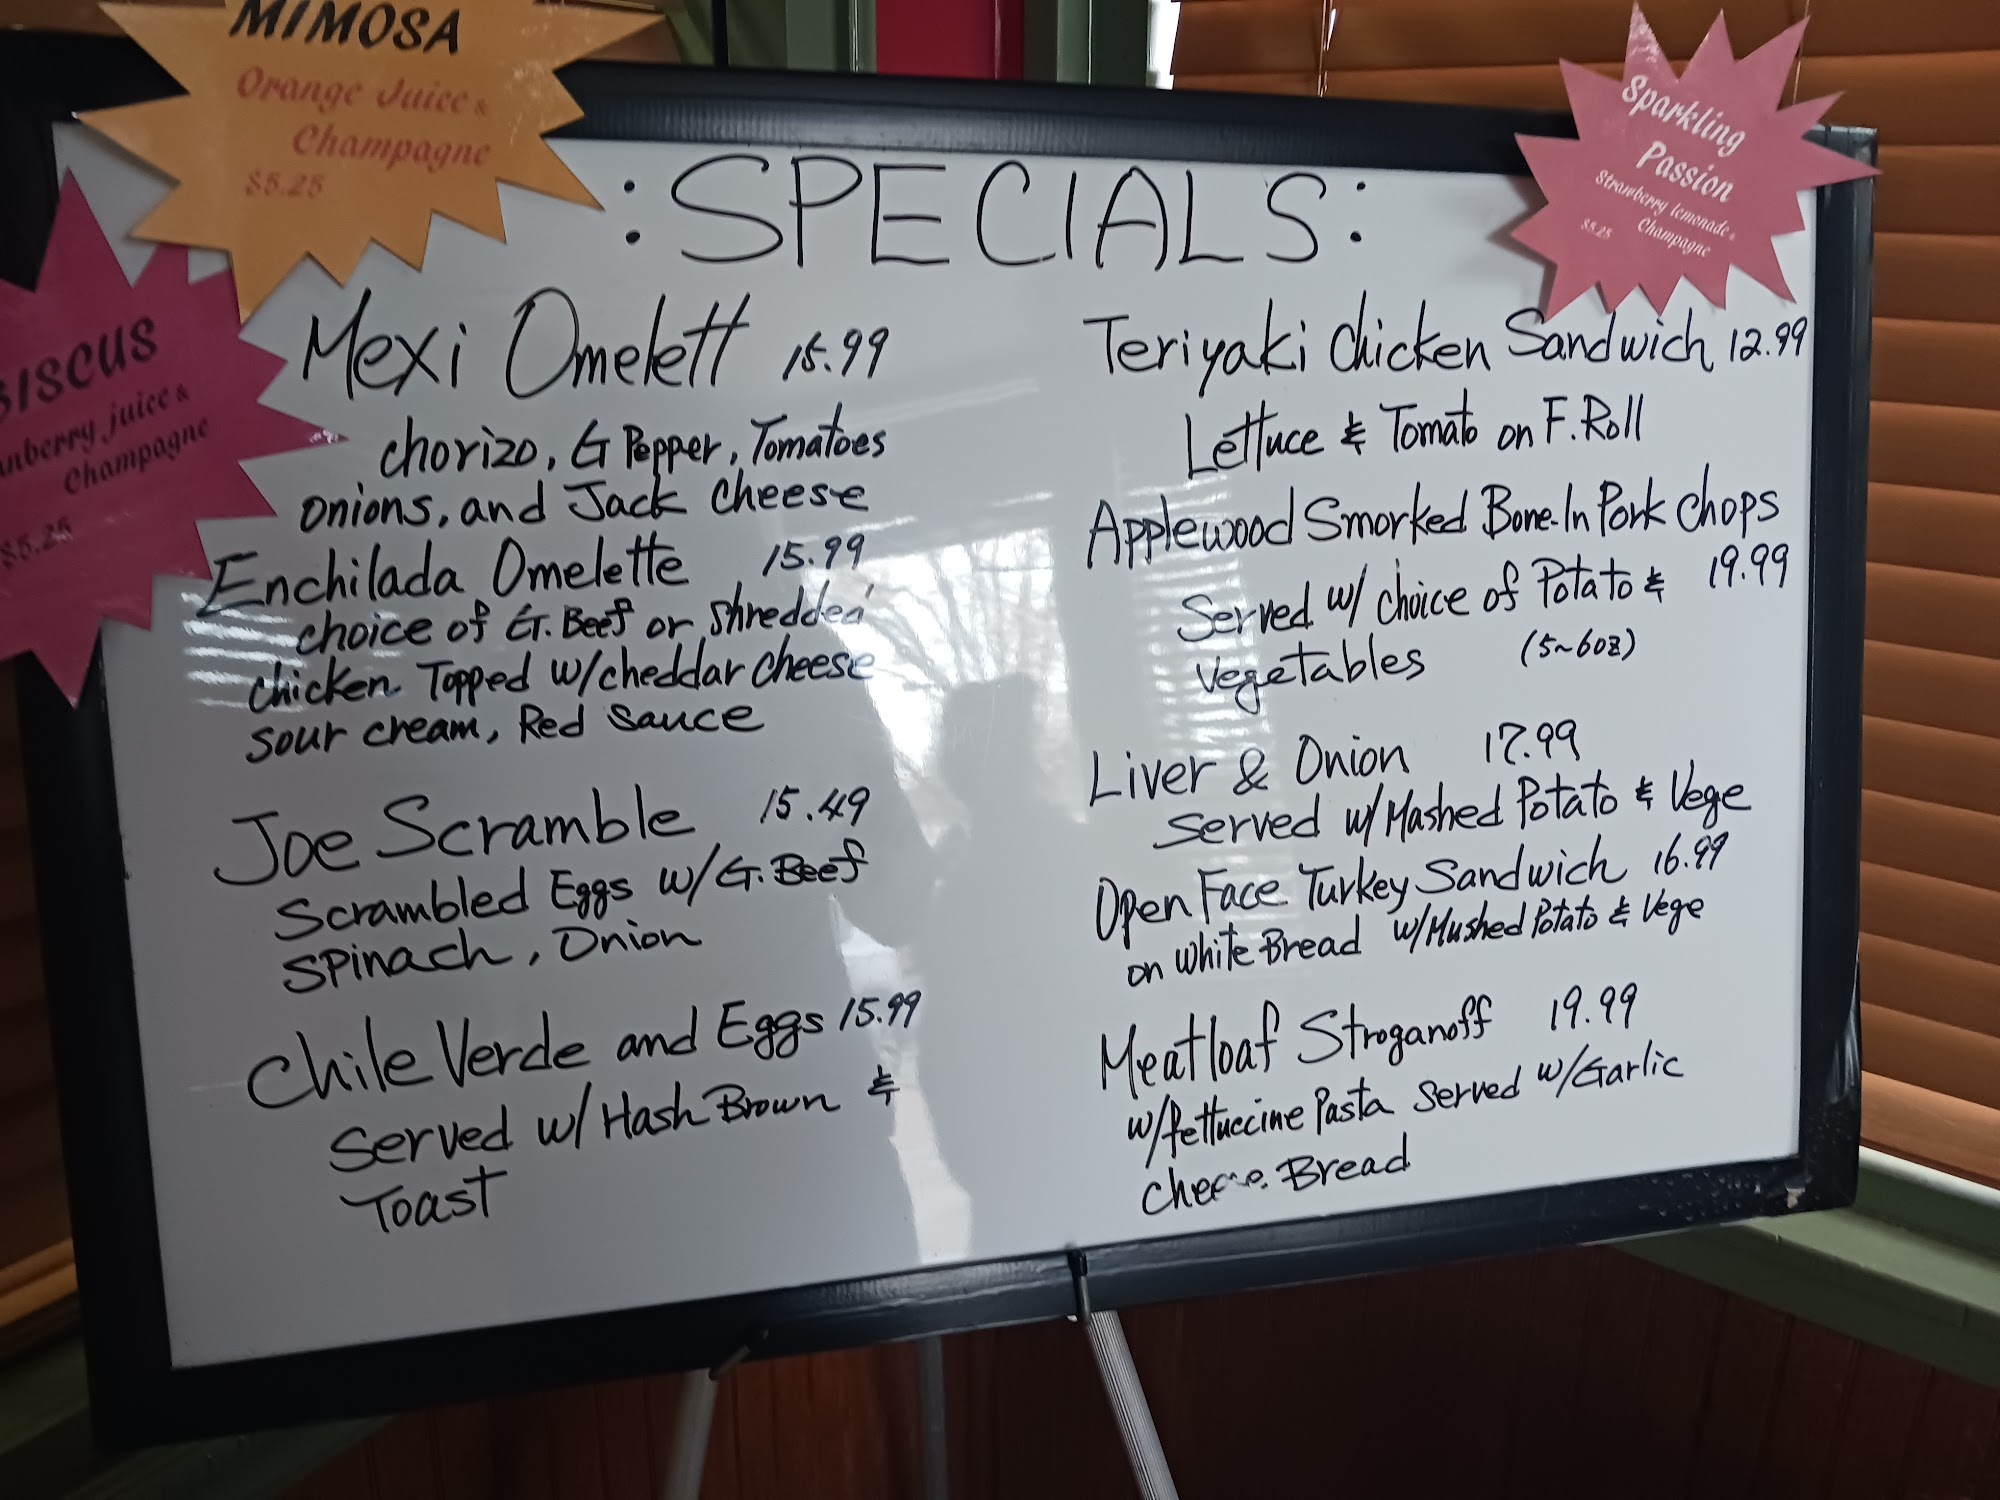 MIMOSA
Orange Juice &
Champagne
$5.25
BISCUS
anberry juice &
Champagne
$5.25
Sparkling
Passion
Strawberry lemonade &
Champagne
$5.25
: SPECIALS :
Mexi Omelett 15.99
chorizo, G Pepper, Tomatoes
onions, and Jack cheese
Enchilada Omelette 15.99
choice of G. Beef or shredded
chicken Topped w/cheddar cheese
sour cream, Red sauce
Joe Scramble 15.49
Scrambled Eggs w/G. Beef
spinach, Onion
Chile Verde and Eggs 15.99
served w/Hash Brown &
Toast
Teriyaki Chicken Sandwich 12.99
Lettuce & Tomato on F. Roll
Applewood Smorked Bone-In Pork Chops
Served w/ choice of Potato & 19.99
vegetables (5~6oz)
Liver & Onion 17.99
served w/Mashed Potato & Vege
Open Face Turkey Sandwich 16.99
on white Bread w/Mushed Potato & Vege
Meatloaf Stroganoff 19.99
w/fettuccine Pasta served w/Garlic
Bread